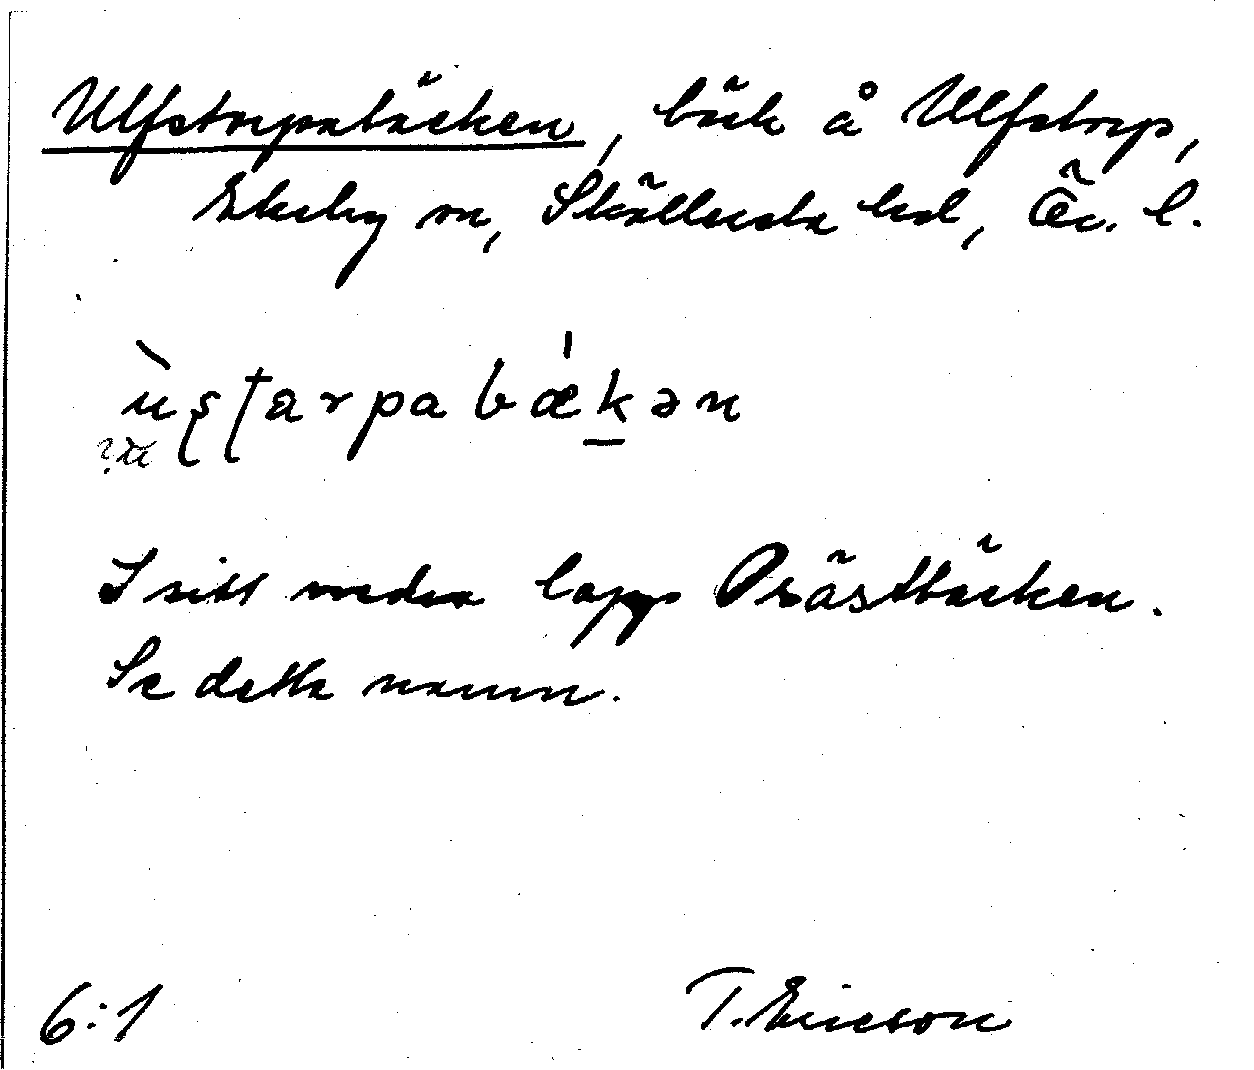 Ulfstorpabäcken, bäck å Ulfstorp,
Ekeby sn, Skyllersta hd, Ör. l.
ùʂʈarpabǽkən
I sitt nedra lopp Prästbäcken.
Se detta namn.
6:1
T. Ericson